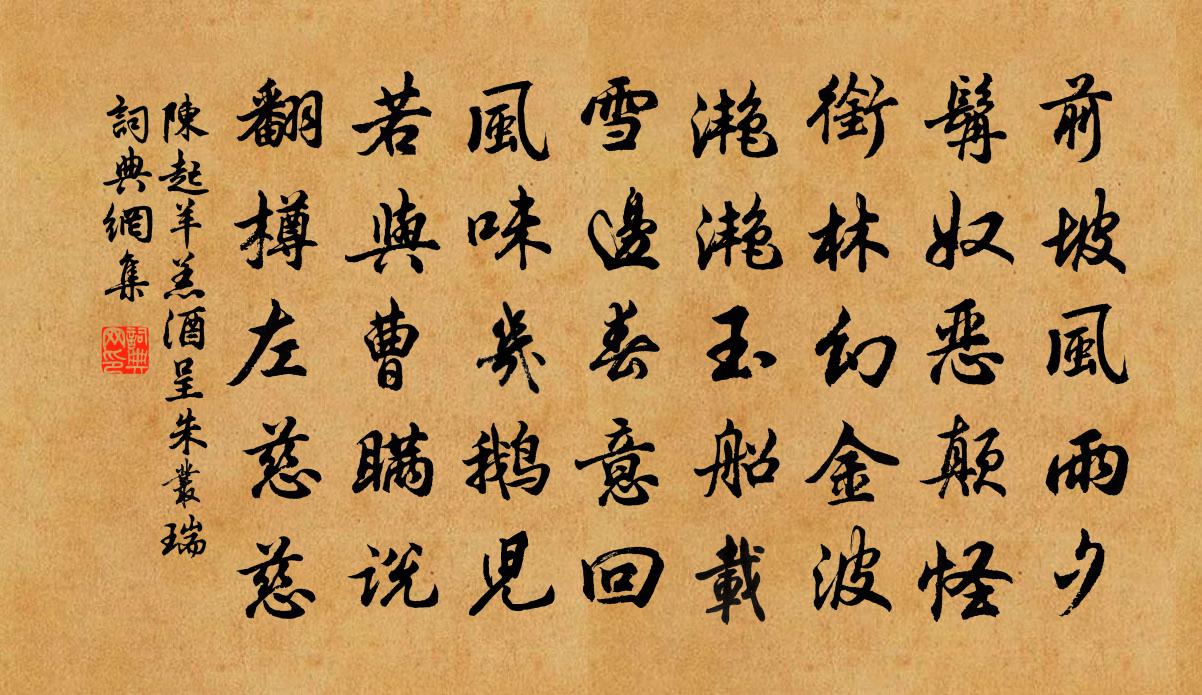 前坡風雨夕
髯奴惡顛怪
銜林幻金波
灔灔玉船載
雪邊春意回
風味幾鵝兒
若與曹瞞説
翻樽左慈慈
陳起羊羔酒呈朱叢瑞
詞典網集
詞典網印